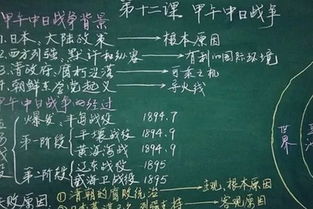 第十二课 甲午中日战争
甲午中日战争背景
1.日本、大陆政策 → 根本原因
2.西方列强、默许和纵容 → 有利的国际环境
3.清政府、腐朽没落 → 可乘之机
4.朝鲜东学党起义 → 导火线
甲午中日战争的经过
爆发、丰岛海战 1894.7
第一阶段 平壤战役 1894.9
黄海海战 1894.9
第二阶段 辽东战役 1895
威海卫战役 1895
失败原因
①清朝的腐败统治 → 主观、根本原因
客观原因
世界